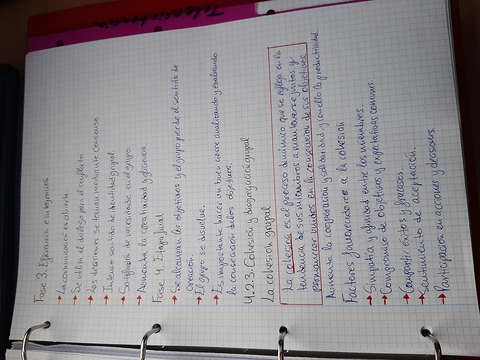 Fase 3. Eficiencia e integración
→ La comunicación es abierta
→ Se utiliza el diálogo para el conflicto
→ Las decisiones se toman mediante consenso
→ Intenso sentido de identidad grupal.
→ Satisfacción de necesidades en el grupo.
→ Aumenta la creatividad y eficacia.
Fase 4. Etapa final
→ Se alcanzan los objetivos y el grupo pierde el sentido de
creación.
→ El grupo se disuelve.
→ Es importante hacer un buen cierre analizando y evaluando
la consecución de los objetivos.
4.2.3. Cohesión y disgregación grupal
La cohesión grupal
La cohesión es el proceso dinámico que se refleja en la
tendencia de sus miembros a mantenerse juntos y
permanecer unidos en la consecución de sus objetivos
Aumenta la cooperación y solidaridad y con ello la productividad.
Factores favorecedores a la cohesión
→ Simpatía y afinidad entre los miembros.
→ Compromiso de objetivos y expectativas comunes.
→ Compartir éxitos y fracasos.
→ Sentimiento de aceptación.
→ Participación en acciones y decisiones.